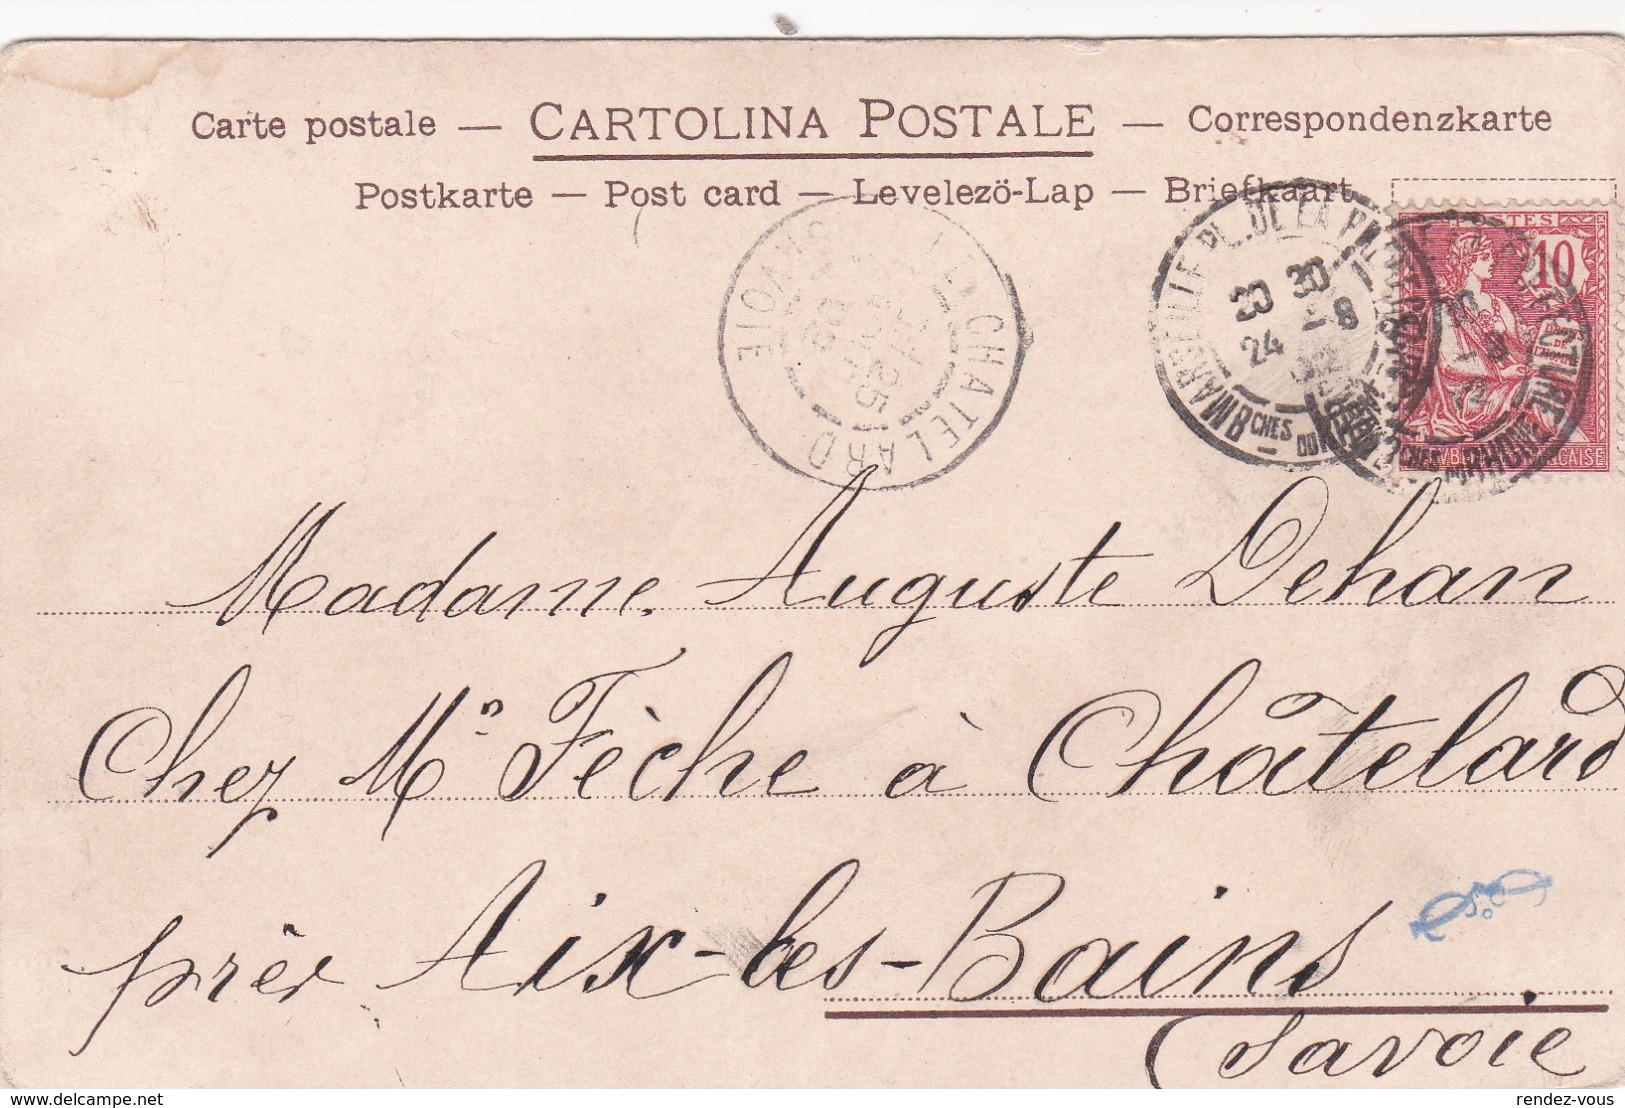 Carte postale — CARTOLINA POSTALE — Correspondenzkarte
Postkarte — Post card — Levelezö-Lap — Briefkaart
LE CHATELARD
SAVOIE
25
02
MARSEILLE PL. DE LA PREFECTURE
BCHES DU RHONE
20 30
24 -8
POSTES
10
Madame Auguste Dehan
Chez Mn Fèche à Châtelard
près Aix-les-Bains
Savoie
www.delcampe.net
rendez-vous